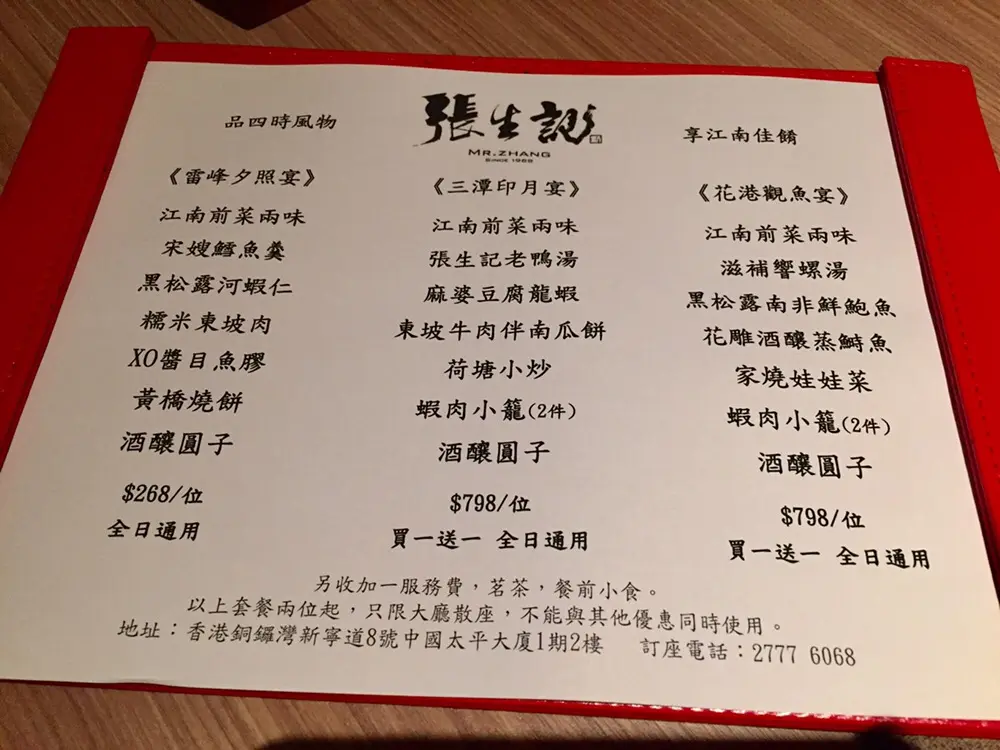 品四時風物
張生記
MR.ZHANG
SINCE 1988
享江南佳餚
《雷峰夕照宴》
江南前菜兩味
宋嫂鱈魚羹
黑松露河蝦仁
糯米東坡肉
XO醬目魚膠
黃橋燒餅
酒釀圓子
$268/位
全日通用
《三潭印月宴》
江南前菜兩味
張生記老鴨湯
麻婆豆腐龍蝦
東坡牛肉伴南瓜餅
荷塘小炒
蝦肉小籠(2件)
酒釀圓子
$798/位
買一送一 全日通用
《花港觀魚宴》
江南前菜兩味
滋補響螺湯
黑松露南非鮮鮑魚
花雕酒釀蒸鰣魚
家燒娃娃菜
蝦肉小籠(2件)
酒釀圓子
$798/位
買一送一 全日通用
另收加一服務費，茗茶，餐前小食。
以上套餐兩位起，只限大廳散座，不能與其他優惠同時使用。
地址：香港銅鑼灣新寧道8號中國太平大廈1期2樓 訂座電話：2777 6068